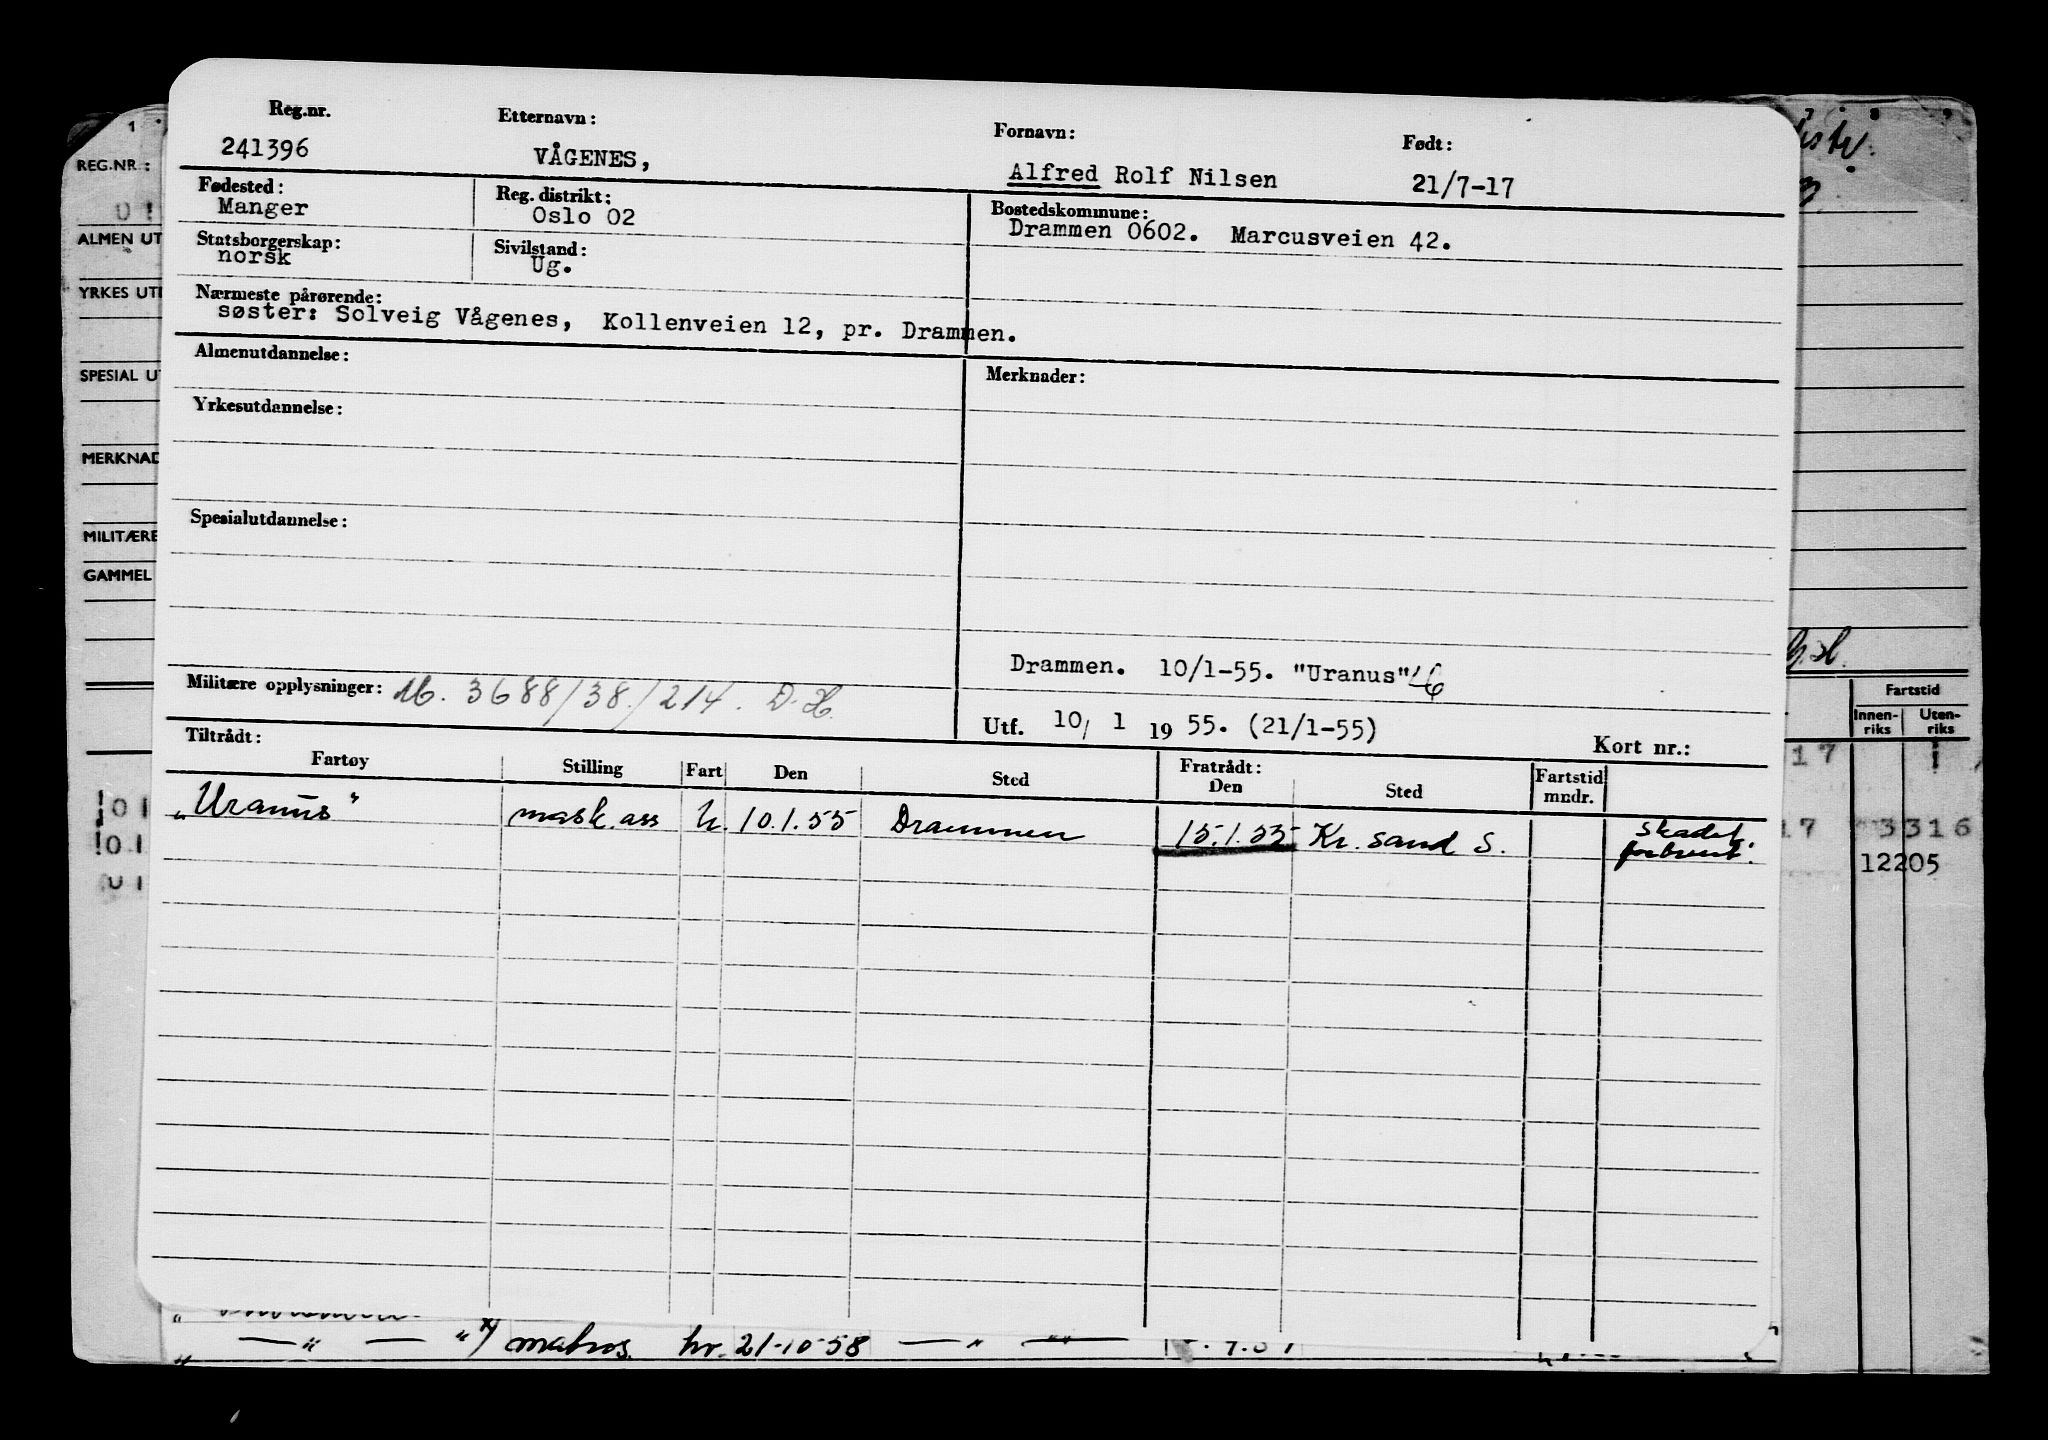 Reg.nr. Etternavn: Fornavn: Født:
241396 VÅGENES, Alfred Rolf Nilsen 21/7-17
Fødested: Reg. distrikt: Bostedskommune:
Manger Oslo 02 Drammen 0602. Marcusveien 42.
Statsborgerskap: Sivilstand:
norsk Ug.
Nærmeste pårørende:
søster: Solveig Vågenes, Kollenveien 12, pr. Drammen.
Almenutdannelse: Merknader:
Yrkesutdannelse:
Spesialutdannelse:
Drammen. 10/1-55. "Uranus"
Militære opplysninger: M. 3688/38/214. D.H.
Utf. 10/ 1 19 55. (21/1-55)
Kort nr.:
Tiltrådt: Fratrådt:
Fartøy Stilling Fart Den Sted Den Sted Fartstid mndr.
"Uranus" mask. ass U. 10.1.55 Drammen 15.1.55 Kr. sand S. skadet
1
REG.NR.:
ALMEN UT
YRKES UT
SPESIAL U
MERKNAD
MILITÆRE
GAMMEL
Fartstid
Innen-riks Uten-riks
17
17 3316
12205
!01
!01
matros. hr. 21-10-58